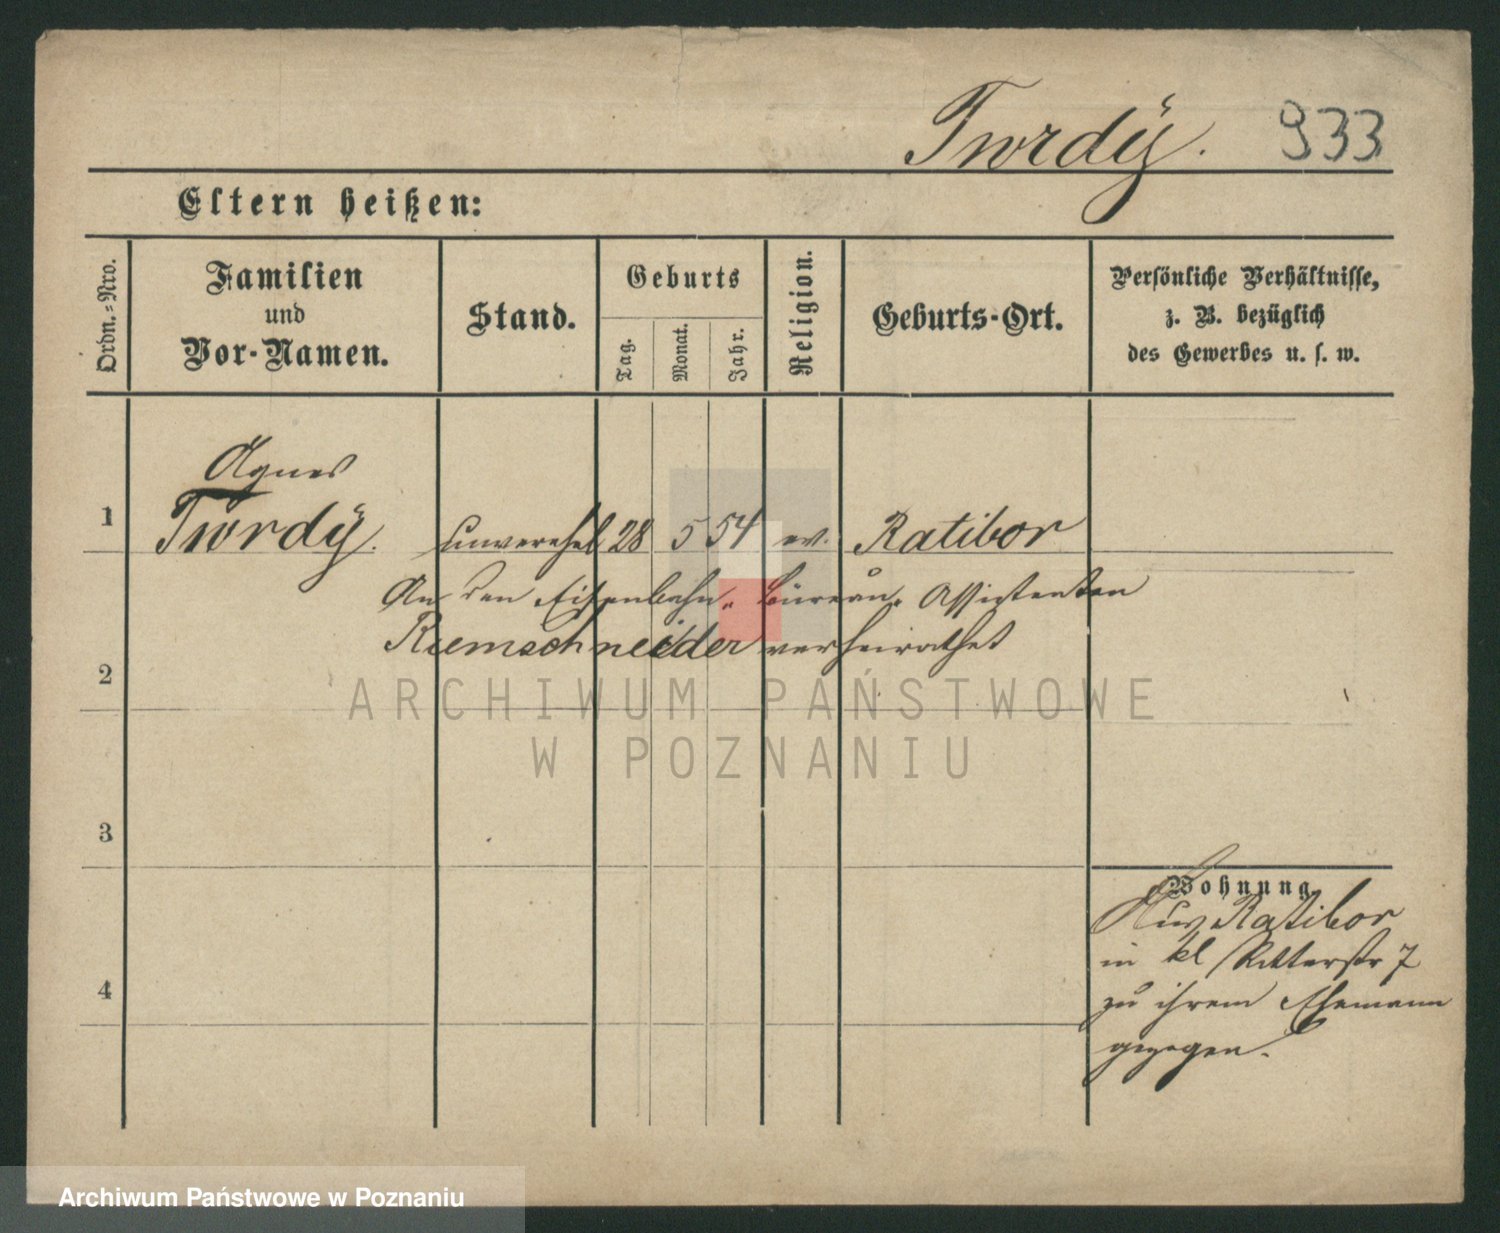 Twrdÿ. 933
Eltern heißen:
Ordn.-Nro.
Familien
und
Vor-Namen.
Stand.
Geburts
Tag.
Monat.
Jahr.
Religion.
Geburts-Ort.
Persönliche Verhältnisse,
z. B. bezüglich
des Gewerbes u. s. w.
Agnes
1 Twrdÿ. unverehel 28 5 54 ev. Ratibor
An den Eisenbahn- Büreau- Assistenten
Riemschneider verheirathet
2
ARCHIWUM PAŃSTWOWE
W POZNANIU
3
Wohnung
Aus Ratibor
in kl Ritterstr 7
4
zu ihrem Ehemann
gezogen.
Archiwum Państwowe w Poznaniu